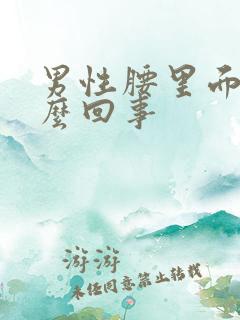 男性腰里而
麼回事
游游
未经同意禁止转载